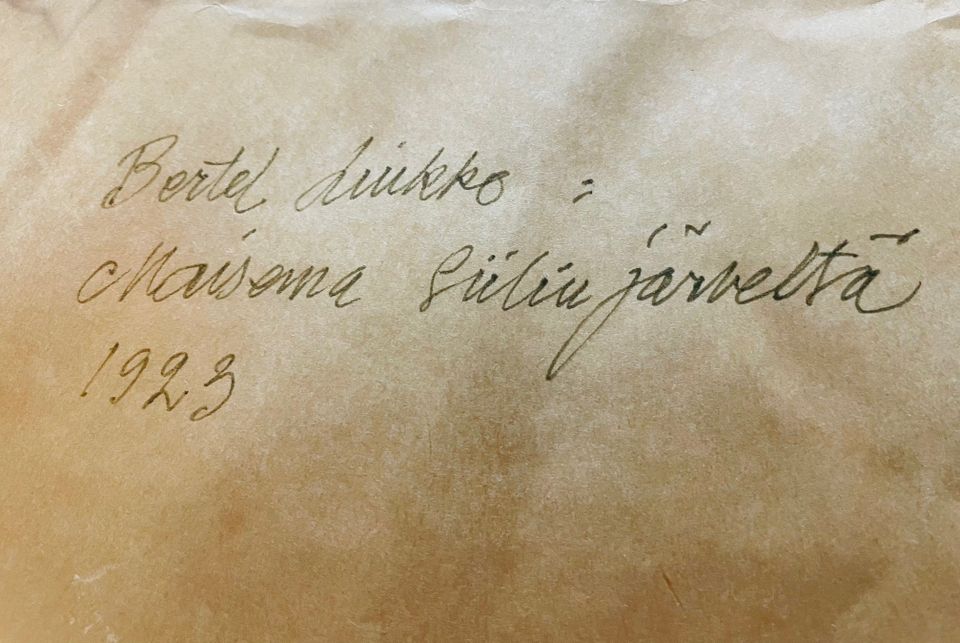 Bertel Linkko :
Maisema Siilinjärveltä
1923